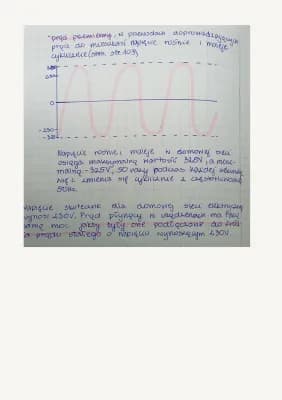 "prąd przemienny, w przewodach doprowadzających
prąd do mieszkań napięcie rośnie i maleje
cyklicznie (str. 103)
0
-230
-325
Napięcie rośnie i maleje w domowej sieci
osiąga maksymalną wartość 325V, a mini-
malną -325V, 50 razy podczas każdej sekundy
się z zmienia się cyklicznie z częstotliwością
50Hz.
Napięcie skuteczne dla domowej sieci elektrycznej
wynosi 230V. Prąd płynący w urządzeniach ma taką
samą moc jakby były one podłączone do
prądu stałego o napięciu wynoszącym 230V.